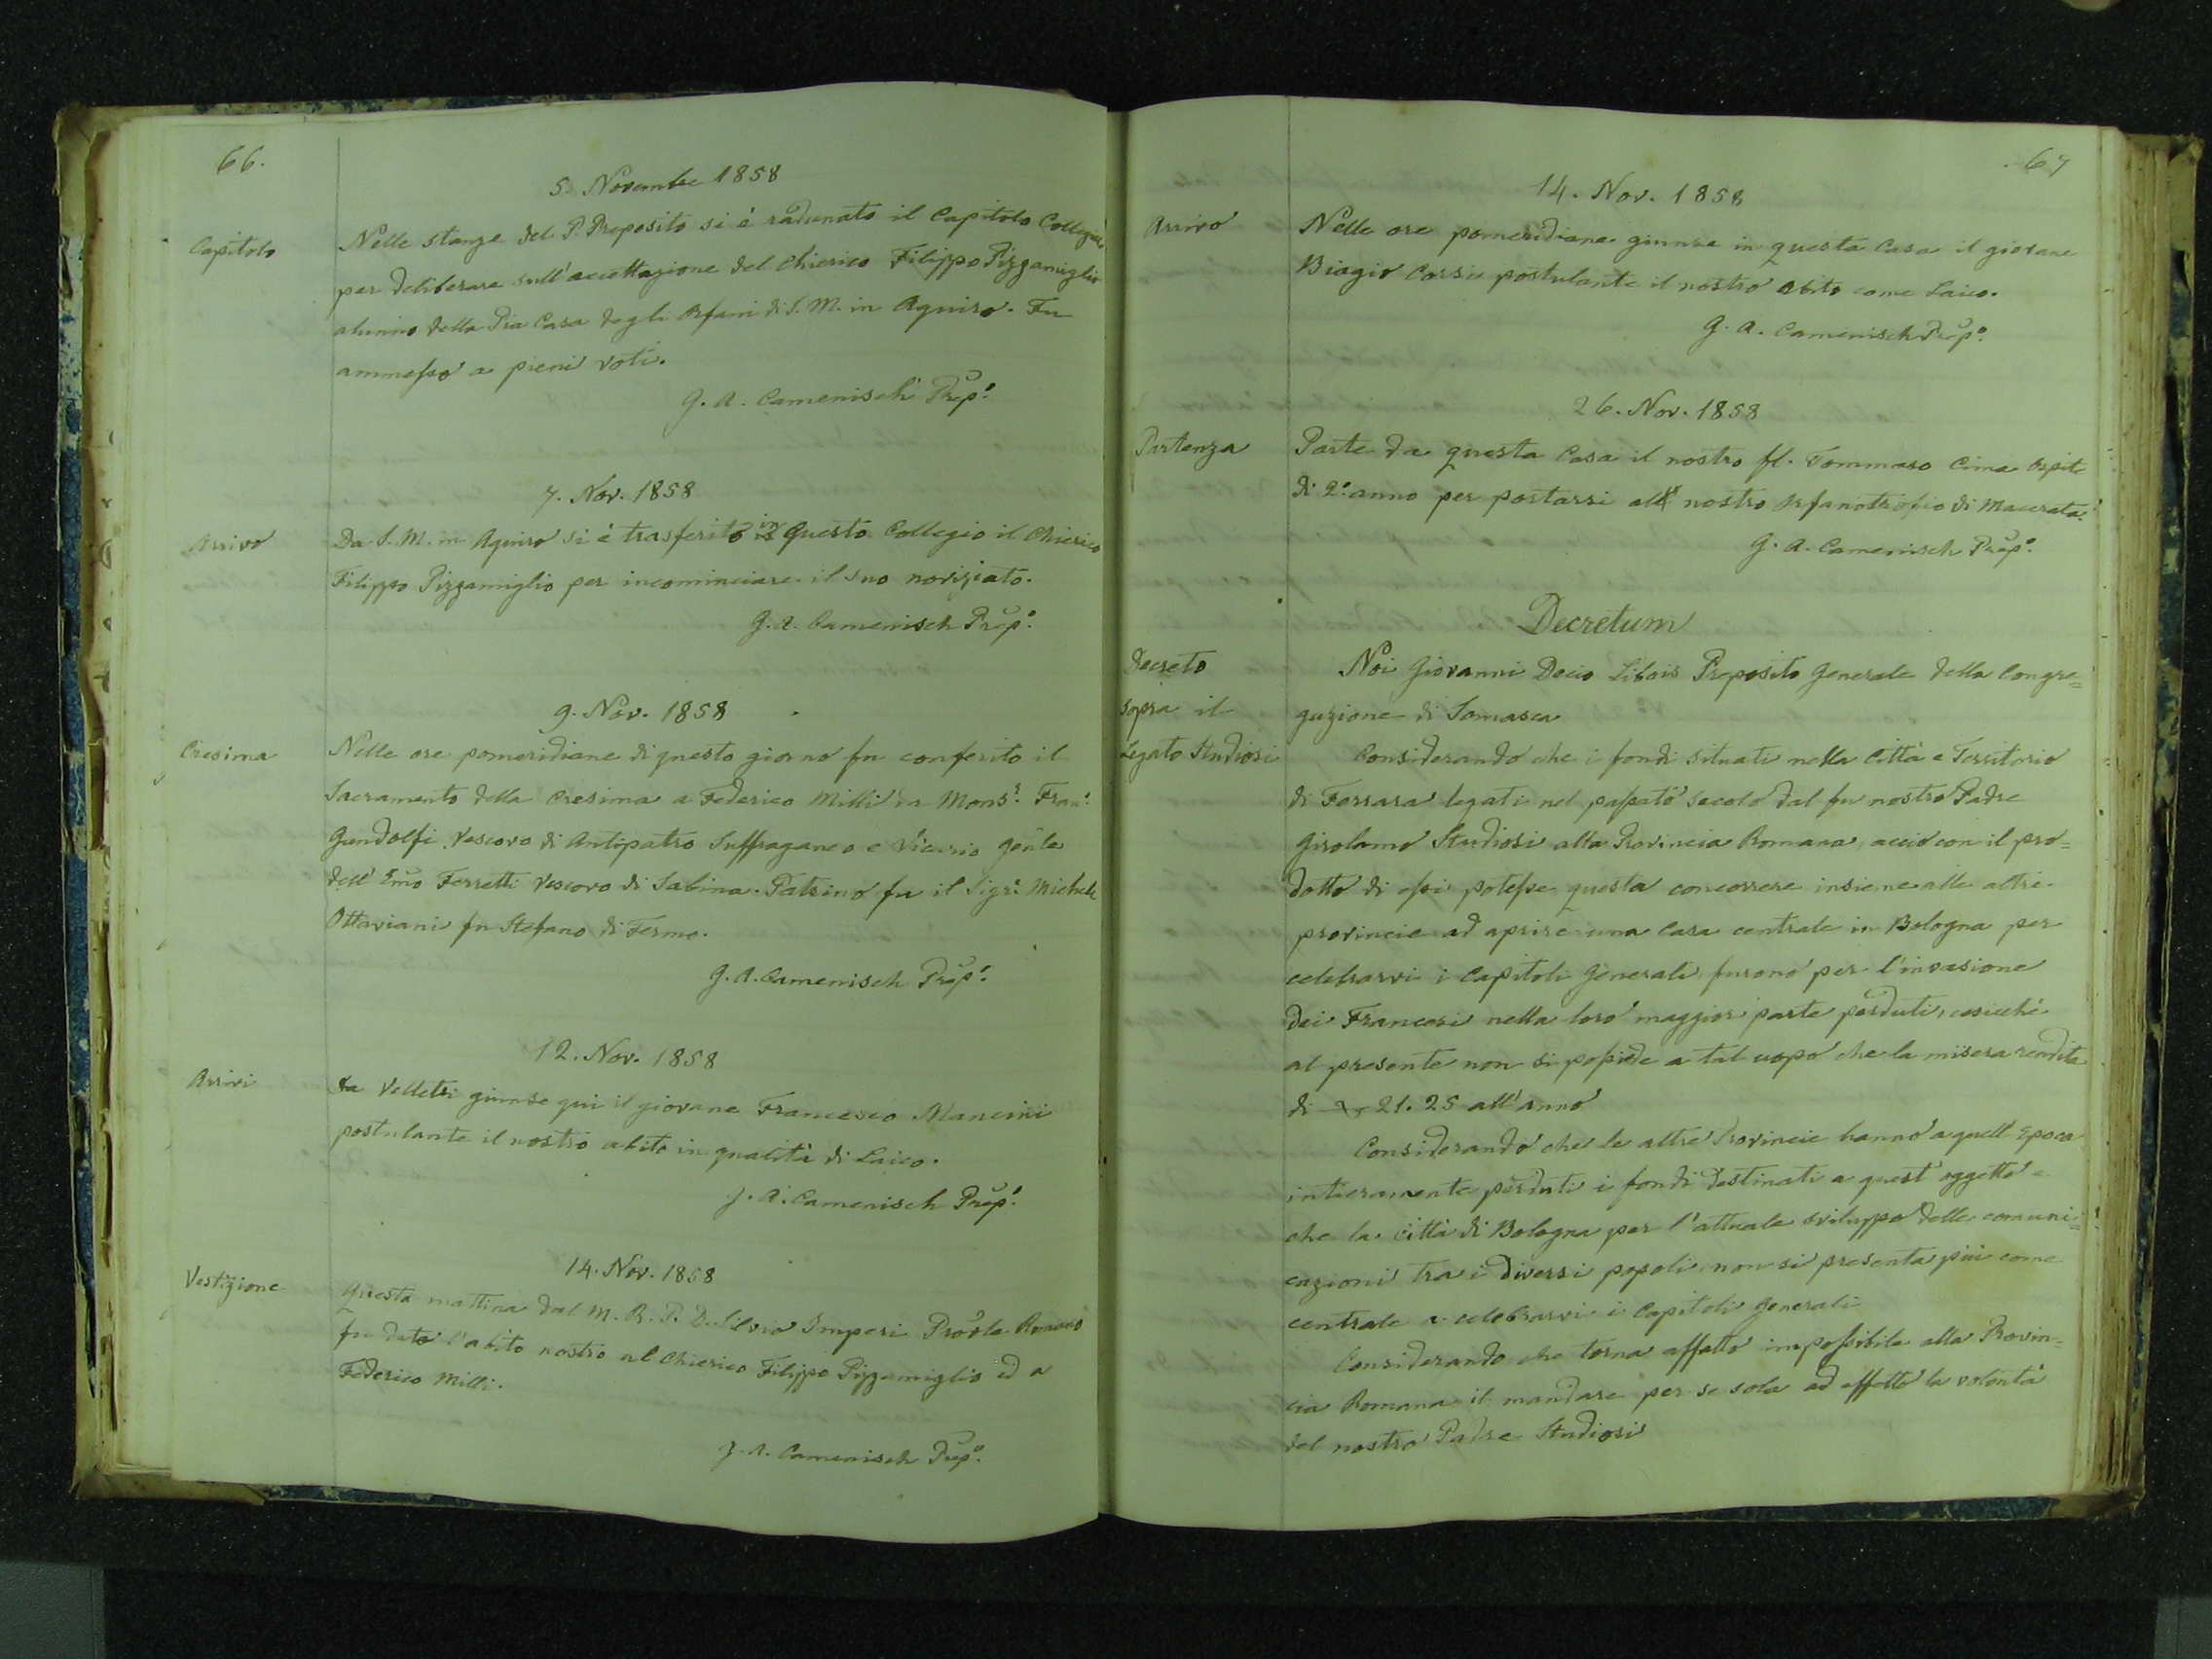 66.
5. Novembre 1858
Capitolo
Nelle stanze del P. Preposito si è radunato il Capitolo Collegiale
per deliberare sull'accettazione del Chierico Filippo Pizzamiglio
alunno della Pia Casa degli Orfani di S. M. in Aquiro. Fu
ammesso a pieni voti.
G. A. Camenisch Prep.º
7. Nov. 1858
Arrivo
Da S. M. in Aquiro si è trasferito in questo Collegio il Chierico
Filippo Pizzamiglio per incominciare il suo noviziato.
G. A. Camenisch Prep.º
9. Nov. 1858
Cresima
Nelle ore pomeridiane di questo giorno fu conferito il
Sacramento della Cresima a Federico Milli da Mons.r Fran.
Gandolfi Vescovo di Antipatro Suffraganeo e Vicario Gēnle
dell' Emo Ferretti Vescovo di Sabina. Patrino fu il Sigr. Michele
Ottaviani fu Stefano di Fermo.
G. A. Camenisch Prep.º
12. Nov. 1858
Arrivi
Da Velletri giunse qui il giovane Francesco Mancini
postulante il nostro abito in qualità di Laico.
G. A. Camenisch Prep.º
14. Nov. 1858
Vestizione
Questa mattina dal M. R. P. D. Silvio Imperi Provle Romano
fu dato l'abito nostro al Chierico Filippo Pizzamiglio ed a
Federico Milli.
G. A. Camenisch Prep.º
67
14. Nov. 1858
Arrivo
Nelle ore pomeridiane giunse in questa Casa il giovane
Biagio Corsi postulante il nostro abito come Laico.
G. A. Camenisch Prep.º
26. Nov. 1858
Partenza
Parte da questa Casa il nostro fl. Tommaso Cima Ospite
di 2.º anno per portarsi al nostro Orfanotrofio di Macerata.
G. A. Camenisch Prep.º
Decretum
Decreto
sopra il
Legato Studiosi
Noi Giovanni Decio Libois Preposito Generale della Congre=
gazione di Somasca
Considerando che i fondi situati nella Città e Territorio
di Ferrara legati nel passato secolo dal fu nostro Padre
Girolamo Studiosi alla Provincia Romana, acciò con il pro=
dotto di essi potesse questa concorrere insieme alle altre
provincie ad aprire una Casa centrale in Bologna per
celebrarvi i Capitoli Generali, furono per l'invasione
dei Francesi nella loro maggior parte perduti, cosicchè
al presente non si possiede a tal uopo che la misera rendita
di 21. 25 all'anno
Considerando che le altre Provincie hanno a quell'epoca
intieramente perduti i fondi destinati a quest'oggetto e
che la città di Bologna per l'attuale sviluppo delle comuni=
cazioni tra i diversi popoli non si presenta più come
centrale a celebrarvi i Capitoli Generali
Considerando che torna affatto impossibile alla Provin=
cia Romana il mandare per se sola ad effetto la volontà
del nostro Padre Studiosi